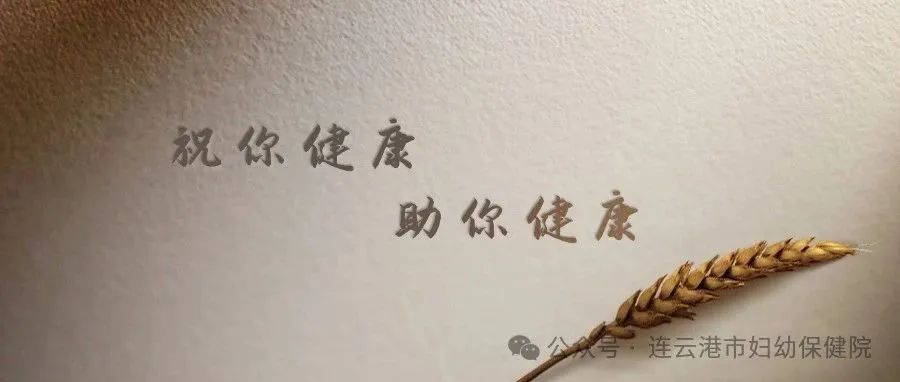 祝你健康
助你健康
公众号 · 连云港市妇幼保健院